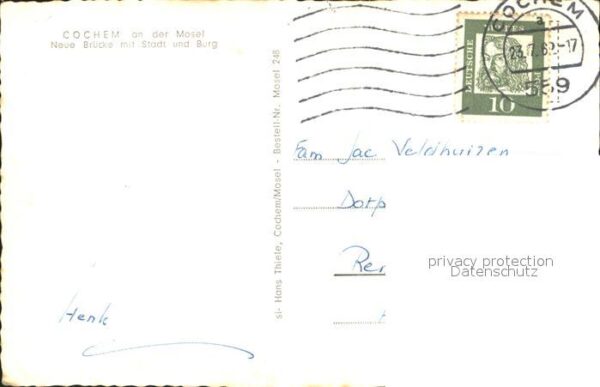 COCHEM an der Mosel
Neue Brücke mit Stadt und Burg
si- Hans Thiele, Cochem/Mosel - Bestell-Nr. Mosel 248
COCHEM
a
23.7.62-17
559
DEUTSCHE
10
Fam Jac Veldhuizen
Dorp
Ren
privacy protection
Datenschutz
Henk